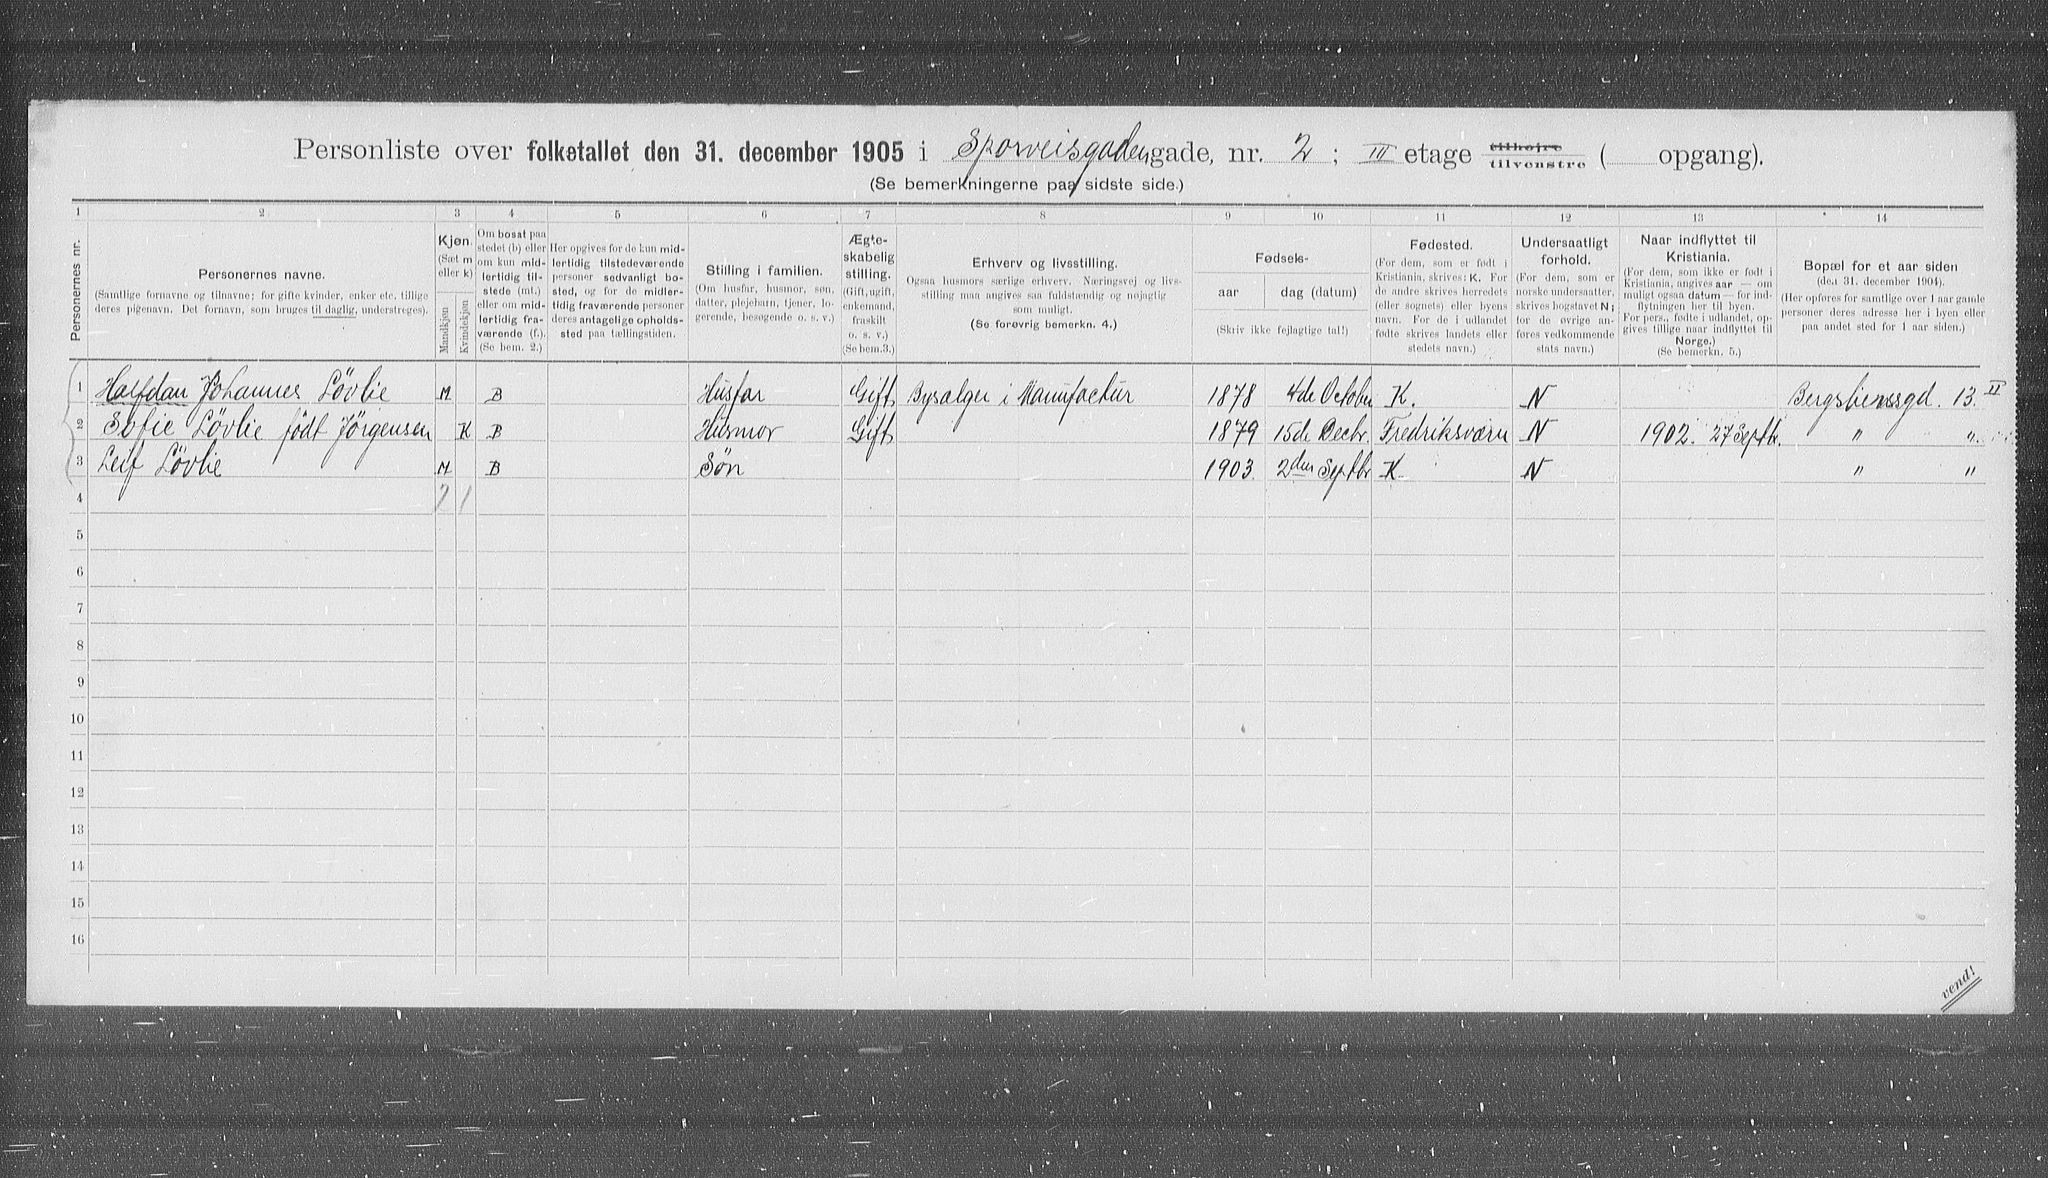 Personliste over folketallet den 31. december 1905 i Sporveisgaden gade, nr. 2 ; III etage tilhøjre tilvenstre ( opgang).
(Se bemerkningerne paa sidste side.)
1 2 3 4 5 6 7 8 9 10 11 12 13 14
Personernes nr.
Personernes navne.
(Samtlige fornavne og tilnavne; for gifte kvinder, enker etc. tillige
deres pigenavn. Det fornavn, som bruges til daglig, understreges).
Kjøn.
(Sæt m
eller k)
Mandkjøn
Kvindekjøn
Om bosat paa
stedet (b) eller
om kun mid-
lertidig til-
stede (mt.)
eller om mid-
lertidig fra-
værende (f.).
(Se bem. 2.)
Her opgives for de kun mid-
lertidig tilstedeværende
personer sedvanligt bo-
sted, og for de midler-
tidig fraværende personer
deres antagelige opholds-
sted paa tællingstiden.
Stilling i familien.
(Om husfar, husmor, søn,
datter, plejebarn, tjener, lo-
gerende, besøgende o. s. v.)
Ægte-
skabelig
stilling.
(Gift, ugift,
enkemand,
fraskilt
o. s. v.)
(Se bem. 3.)
Erhverv og livsstilling.
Ogsaa husmors særlige erhverv. Næringsvej og livs-
stilling maa angives saa fuldstændig og nøjagtig
som muligt.
(Se forøvrig bemerkn. 4.)
Fødsels-
aar
dag (datum)
(Skriv ikke fejlagtige tal!)
Fødested.
(For dem, som er født i
Kristiania, skrives: K. For
de andre skrives herredets
(eller sognets) eller byens
navn. For de i udlandet
fødte skrives landets eller
stedets navn.)
Undersaatligt
forhold.
(For dem, som er
norske undersaatter,
skrives bogstavet N;
for de øvrige an-
føres vedkommende
stats navn.)
Naar indflyttet til
Kristiania.
(For dem, som ikke er født i
Kristiania, angives aar — om
muligt ogsaa datum — for ind-
flytningen her til byen.
For pers. fødte i udlandet, op-
gives tillige naar indflyttet til
Norge.)
(Se bemerkn. 5.)
Bopæl for et aar siden
(den 31. december 1904).
(Her opføres for samtlige over 1 aar gamle
personer deres adresse her i byen eller
paa andet sted for 1 aar siden.)
1 Halfdan Johannes Lövlie M B Husfar Gift Bysælger i Manufactur 1878 4de October K. N Bergsliensgd. 13. II
2 Sofie Lövlie födt Jörgensen K B Husmor Gift 1879 15de Decbr. Fredriksværn N 1902. 27 Septb. " "
3 Leif Lövlie M B Sön 1903. 2den Septbr K. N " "
4 2 1
5
6
7
8
9
10
11
12
13
14
15
16
vend!